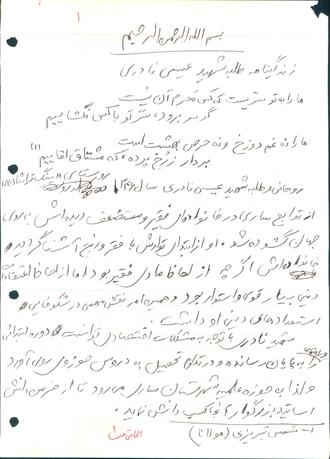 ۱
بسم الله الرحمن الرحیم
زندگینامه طلبه شهید عیسی نادری
ما را به تو سریست که کس محرم آن نیست
گر سر برود، سر تو با کس نگشاییم
ما را نه غم دوزخ و نه حرص بهشت است
بردار ز رخ پرده که مشتاق لقاییم (۱)
روحانی و طلبه شهید عیسی نادری سال ۱۳۴۰ روستای
از توابع ساری در خانواده‌ای فقیر و مستضعف دیده‌اش به روی
جهان گشوده شد. او از ابتدای تولدش با فقر و رنج آشنا گردید
خانواده‌اش اگر چه از لحاظ مادی فقیر بود اما از لحاظ اعتقادات
دینی بسیار قوی و استوار بود و همین امر نقش مهمی در شکوفایی
استعدادهای دینی او داشت.
شهید نادری با توجه به مشکلات اقتصادی توانست دوره ابتدائی
به پایان رسانده و در ادامه تحصیل به دروس حوزوی روی آورد
و لذا به حوزه علمیه شهرستان ساری می‌رود تا از خرمن دانش
اساتید بزرگوار آنجا کسب دانش نماید.
۱- شمس تبریزی (مولانا)